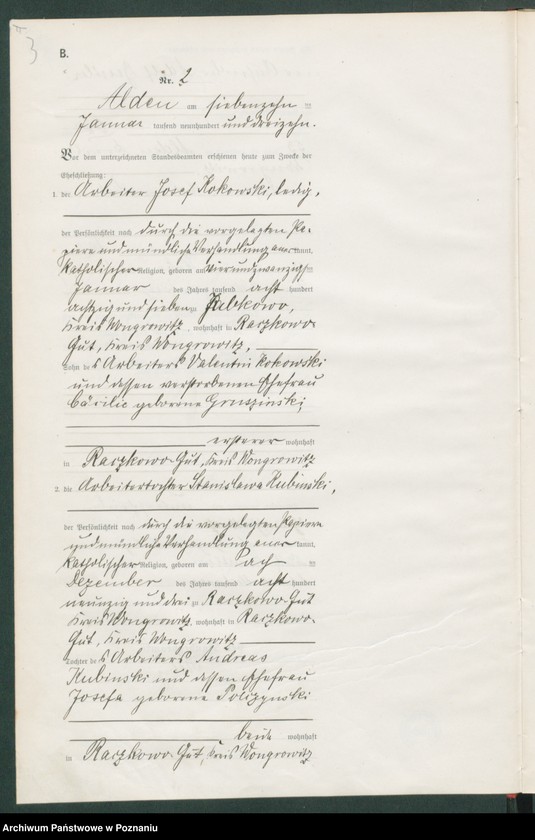 3
B.
Nr. 2
Alden am siebenzehn ten
Januar tausend neunhundert und dreizehn.
Vor dem unterzeichneten Standesbeamten erschienen heute zum Zwecke der
Eheschließung:
1. der Arbeiter Josef Kokowski, ledig,
der Persönlichkeit nach durch die vorgelegten Pa-
piere und mündliche Verhandlung aner kannt,
katholischer Religion, geboren am vierundzwanzigsten
Januar des Jahres tausend acht hundert
achtzig und sieben zu Jabkowo,
Kreis Wongrowitz, wohnhaft in Raczkowo-
Gut, Kreis Wongrowitz,
Sohn des Arbeiters Valentin Kokowski
und dessen verstorbenen Ehefrau
Cäcilie geborene Gruszinski,
ersterer wohnhaft
in Raczkowo-Gut, Kreis Wongrowitz
2. die Arbeitertochter Stanislawa Kubinski,
der Persönlichkeit nach durch die vorgelegten Papiere
und mündliche Verhandlung aner kannt,
katholischer Religion, geboren am ach ten
Dezember des Jahres tausend acht hundert
neunzig und drei zu Raczkowo-Gut
Kreis Wongrowitz, wohnhaft in Raczkowo-
Gut, Kreis Wongrowitz
Tochter des Arbeiters Andreas
Kubinski und dessen Ehefrau
Josefa geborene
beide wohnhaft
in Raczkowo-Gut, Kreis Wongrowitz
Archiwum Państwowe w Poznaniu